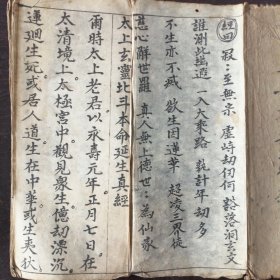 寂上至無宗 虛峙劫仞阿 豁落洞玄文
誰測此幽遐 一入大乘路 孰計年劫多
不生亦不滅 欲生因蓮華 超凌三界徒
慈心解世羅 真人無上德 世世為仙家
太上玄靈北斗本命延生真經
爾時太上老君以永壽元年正月七日在
太清境上太極宮中觀見衆生億劫漂沉
迴生死或居人道生在中華或生夷狄